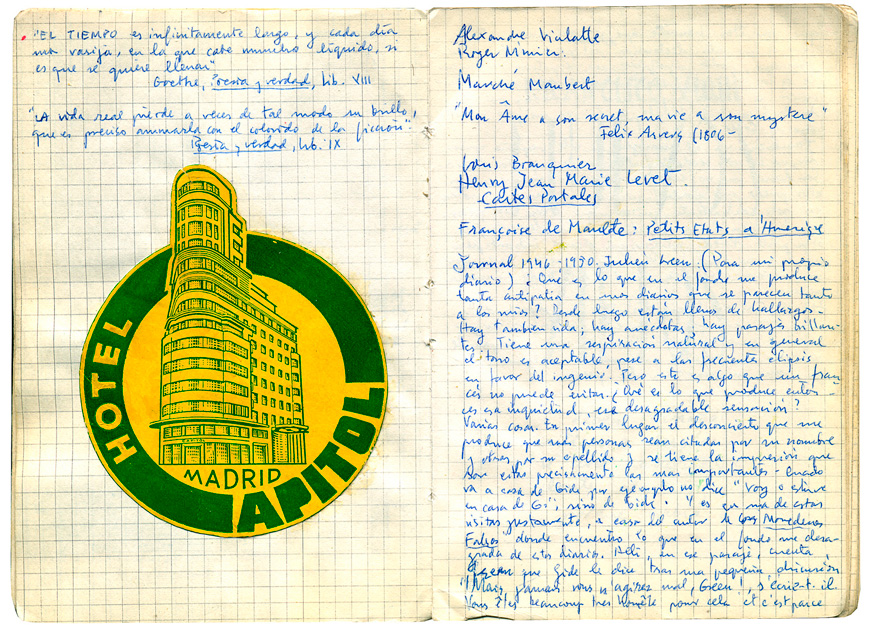 "EL TIEMPO es infinitamente largo, y cada día
una vasija, en la que cabe mucho líquido, si
es que se quiere llenar"
Goethe, Poesía y verdad, lib. XIII
"LA vida real pierde a veces de tal modo su brillo,
que es preciso animarla con el colorido de la ficción".
Poesía y verdad, lib. IX
HOTEL
CAPITOL
MADRID
Alexandre Vialatte
Roger
Marché Maubert
"Mon Âme a son secret, ma vie a son mystère"
Felix Arvers (1806-
Louis Brauquier
Henry Jean Marie Levet.
Cartes Postales
Françoise de : Petits Etats d'Amerique
Journal 1946-1950. Julien Green. (Para mi propio
diario) ¿Qué es lo que en el fondo me produce
tanta antipatía en unos diarios que se parecen tanto
a los míos? Desde luego están llenos de hallazgos.
Hay también vida, hay anécdotas, hay pasajes brillan-
tes. Tiene una respiración natural y en general
el tono es aceptable, pese a las frecuentes elipsis
en favor del ingenio. Pero esto es algo que un fran-
cés no puede evitar. ¿Qué es lo que produce enton-
ces esa inquietud, esa desagradable sensación?
Varias cosas. En primer lugar el desconcierto que me
produce que unas personas sean citadas por su nombre
y otras por su apellido y se tiene la impresión que
son estas precisamente las más importantes. Cuando
va a casa de Gide por ejemplo no dice "voy o estuve
en casa de G", sino de Gide. Y es en una de estas
visitas justamente, a casa del autor de Los Monederos
Falsos donde encuentro lo que en el fondo me desa-
grada de estos diarios. Allí, en ese pasaje, cuenta
Green que Gide le dice tras una pequeña discusión
"Mais jamais vous n'agirez mal, Green!, s'écrie-t-il.
Vous êtes beaucoup trop honnête pour cela et c'est parce